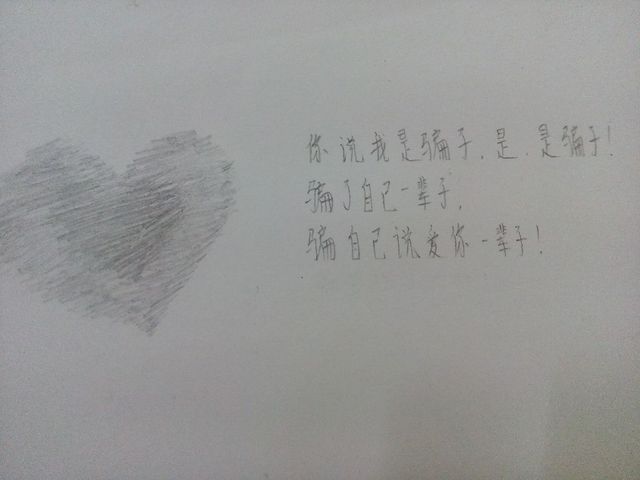 你说我是骗子,是,是骗子!
骗了自己一辈子,
骗自己说爱你一辈子!